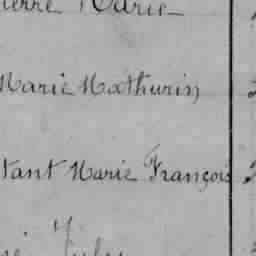 ierre Marie
Marie Mathurin
tant Marie François